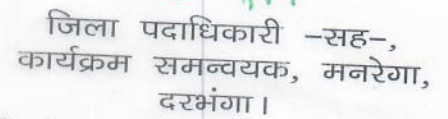 जिला पदाधिकारी –सह–,
कार्यक्रम समन्वयक, मनरेगा,
दरभंगा।